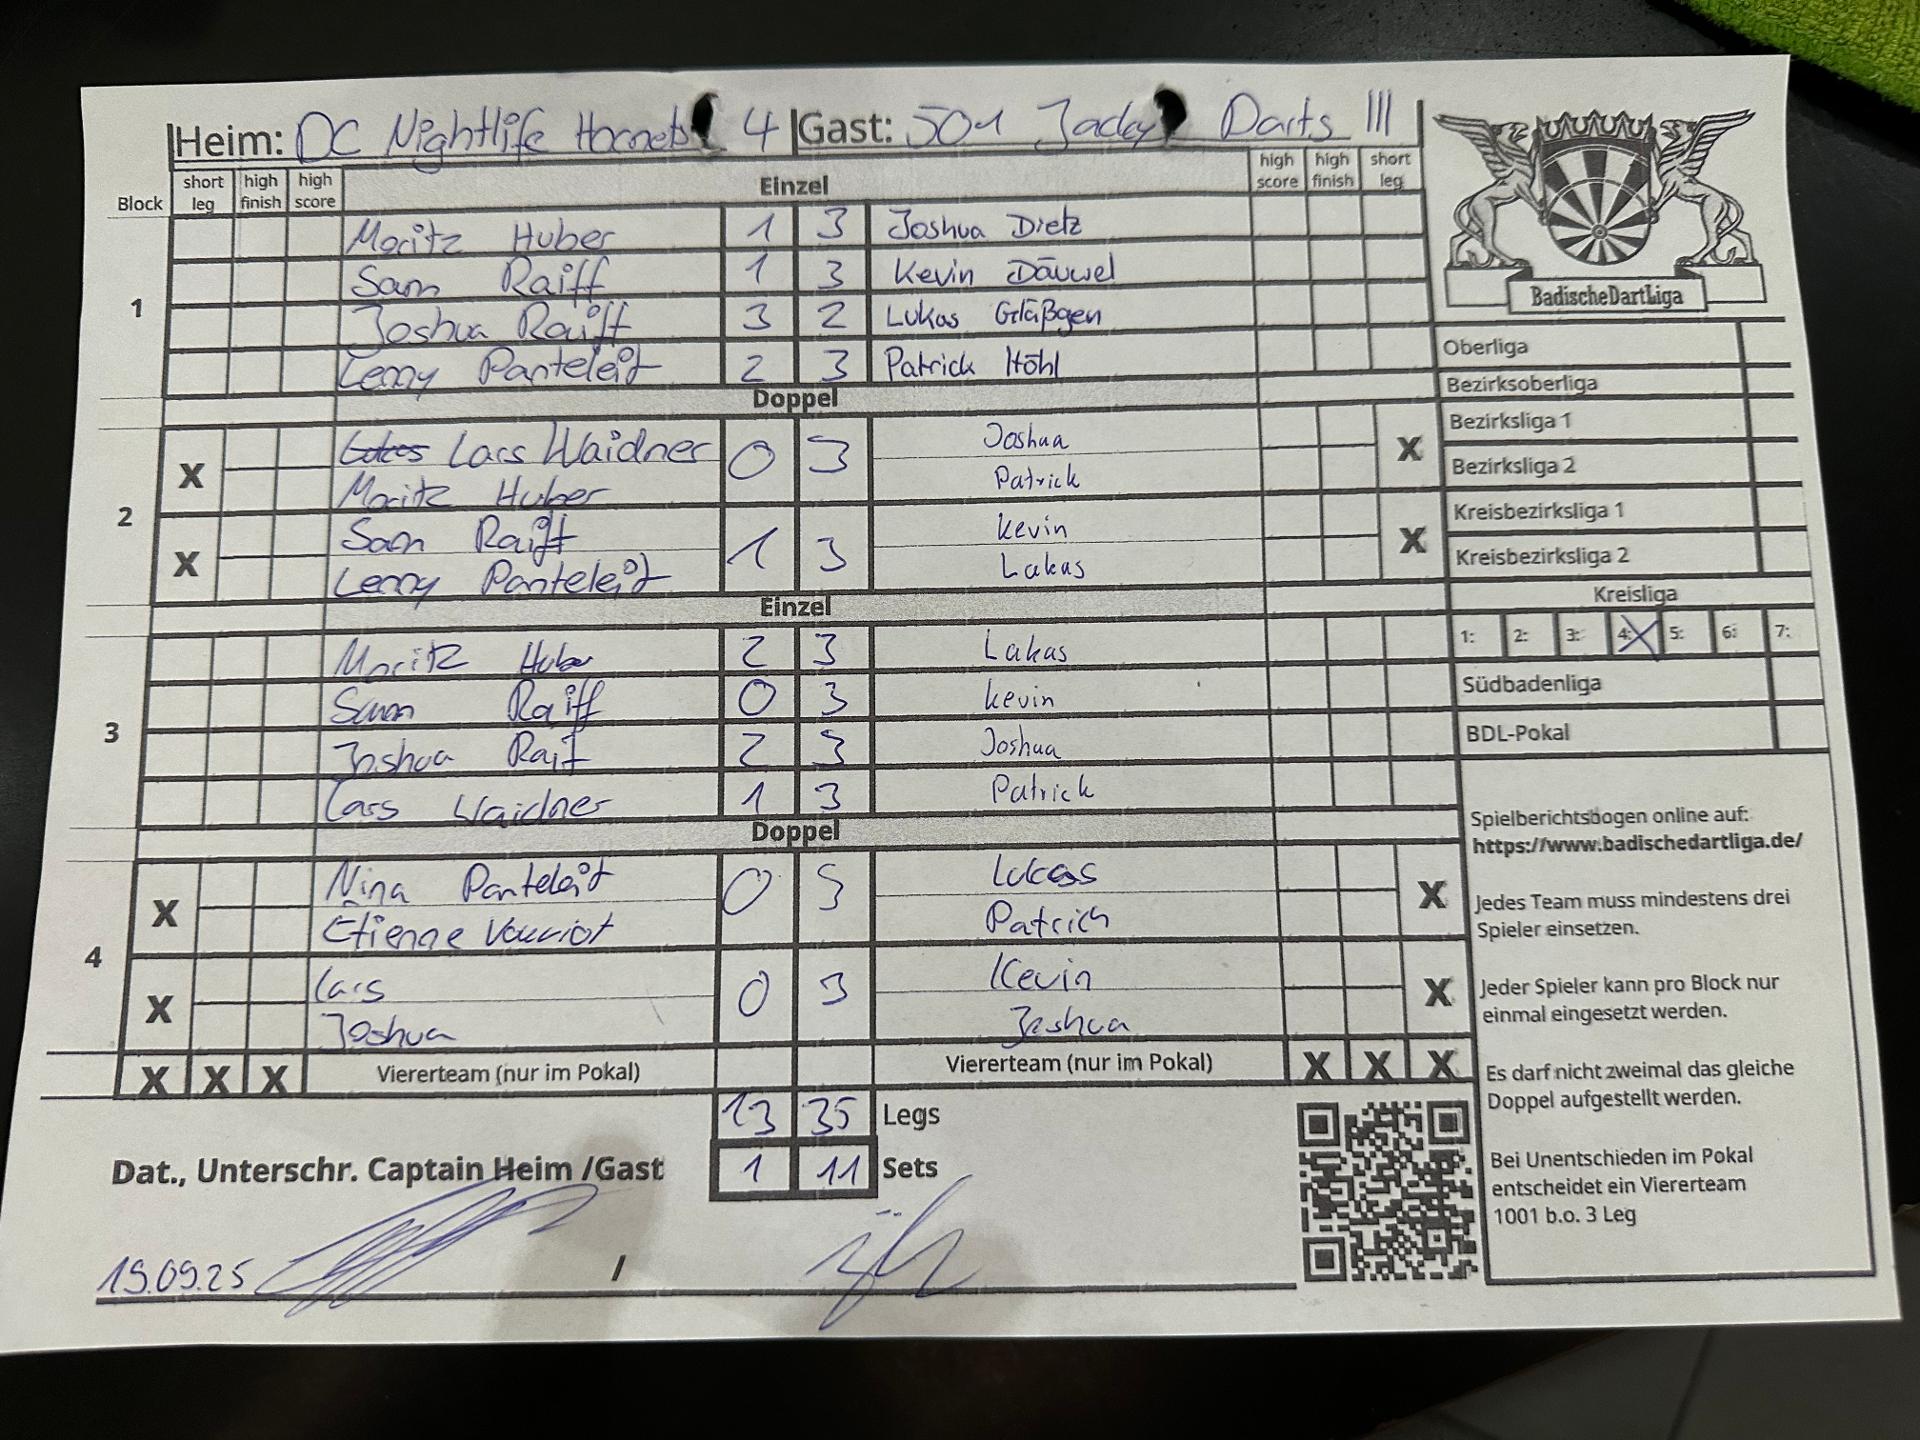 Heim: DC Nightlife Hornets 4 Gast: 501 Jacky Darts III
Block short leg high finish high score Einzel high score high finish short leg
1
Moritz Huber 1 3 Joshua Dietz
Sam Raiff 1 3 Kevin Däuwel
Joshua Raiff 3 2 Lukas Gläßgen
Lenny Panteleit 2 3 Patrick Höhl
Doppel
2
X Lars Waidner 0 3 Joshua X
Moritz Huber Patrick
X Sam Raiff 1 3 Kevin X
Lenny Panteleit Lukas
Einzel
3
Moritz Huber 2 3 Lukas
Sam Raiff 0 3 Kevin
Joshua Raif 2 3 Joshua
Lars Waidner 1 3 Patrick
Doppel
4
X Nina Panteleit 0 3 Lukas X
Etienne Patrick
X Lars 0 3 Kevin X
Joshua Joshua
X X X Viererteam (nur im Pokal) Viererteam (nur im Pokal) X X X
13 35 Legs
Dat., Unterschr. Captain Heim /Gast 1 11 Sets
19.09.25 /
BadischeDartLiga
Oberliga
Bezirksoberliga
Bezirksliga 1
Bezirksliga 2
Kreisbezirksliga 1
Kreisbezirksliga 2
Kreisliga
1: 2: 3: 4: X 5: 6: 7:
Südbadenliga
BDL-Pokal
Spielberichtsbogen online auf:
https://www.badischedartliga.de/
Jedes Team muss mindestens drei
Spieler einsetzen.
Jeder Spieler kann pro Block nur
einmal eingesetzt werden.
Es darf nicht zweimal das gleiche
Doppel aufgestellt werden.
Bei Unentschieden im Pokal
entscheidet ein Viererteam
1001 b.o. 3 Leg